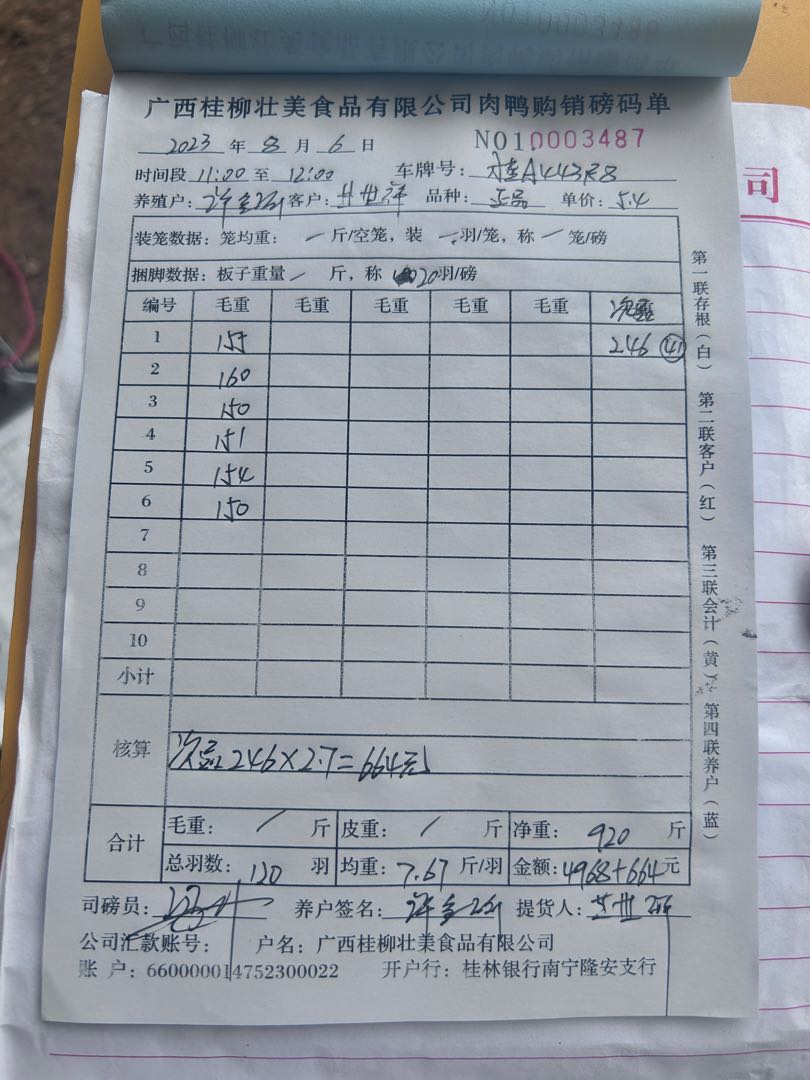 广西桂柳壮美食品有限公司肉鸭购销磅码单
2023 年 8 月 6 日 NO10003487
时间段 11:00 至 12:00 车牌号: 桂A443R8
养殖户: 客户: 品种: 正品 单价: 5.4
装笼数据: 笼均重: / 斤/空笼, 装 羽/笼, 称 / 笼/磅
捆脚数据: 板子重量 / 斤, 称 20羽/磅
编号 毛重 毛重 毛重 毛重 毛重 次品
1 155 246 41
2 160
3 150
4 151
5 154
6 150
7
8
9
10
小计
核算 次品246×2.7=664元
合计 毛重: / 斤 皮重: / 斤 净重: 920 斤
总羽数: 120 羽 均重: 7.67 斤/羽 金额: 4968+664元
司磅员: 养户签名: 提货人:
公司汇款账号: 户名: 广西桂柳壮美食品有限公司
账 户: 660000014752300022 开户行: 桂林银行南宁隆安支行
第一联存根(白) 第二联客户(红) 第三联会计(黄) 第四联养户(蓝)
司